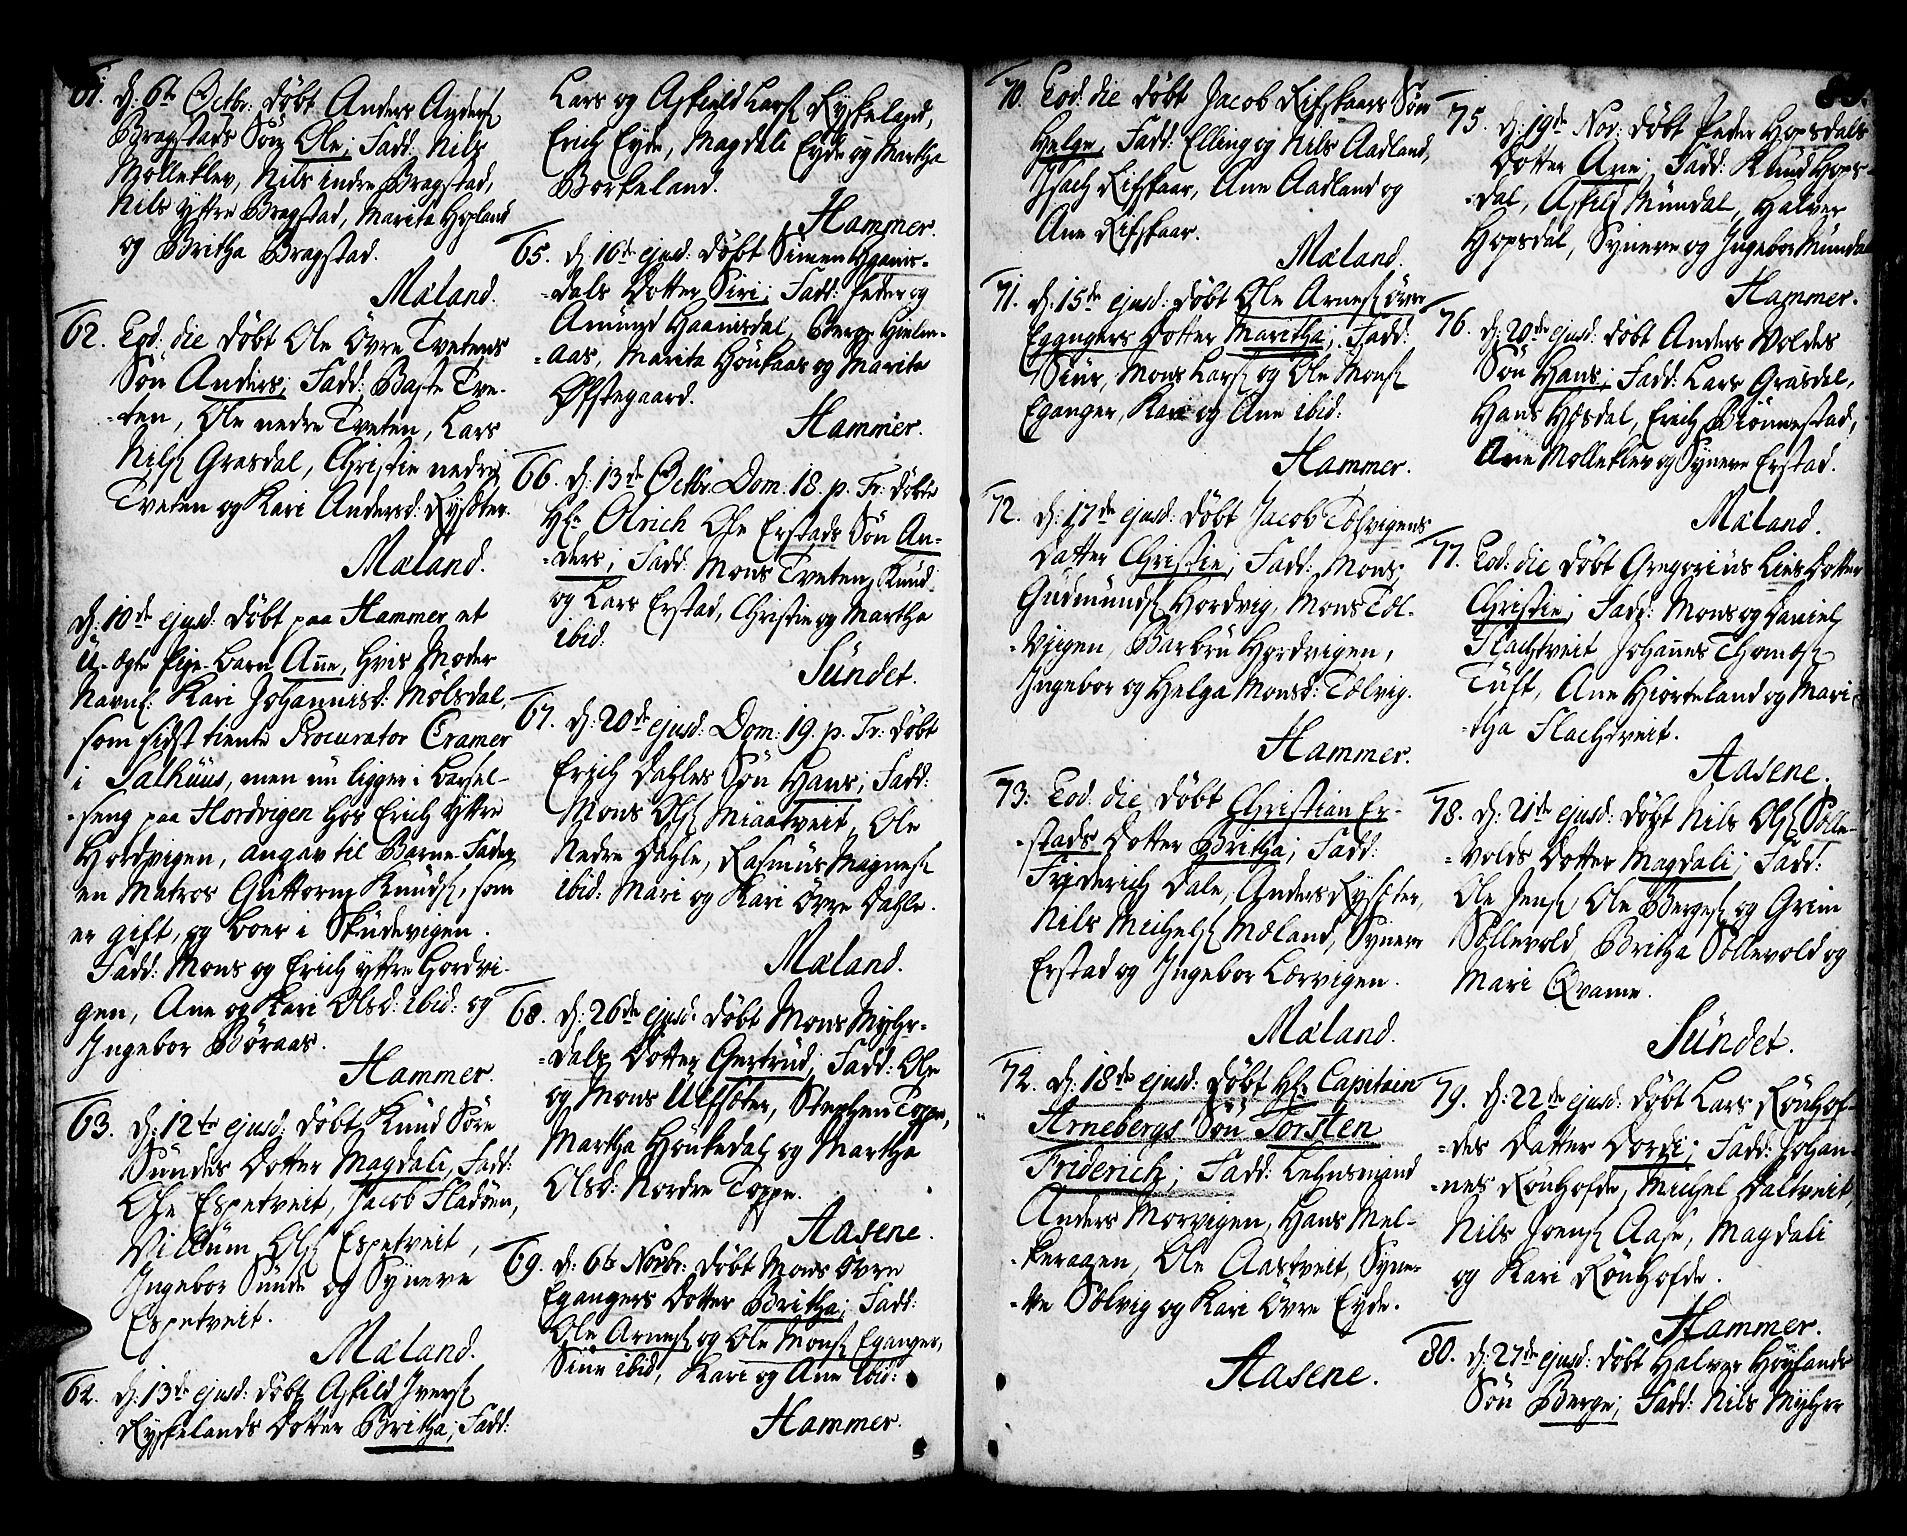 61. d: 6te Octbr: døbt Anders Anders
Bragstads Søn Ole; Fadd: Nils
Mølleklev, Nils indre Bragstad,
Nils yttre Bragstad, Marita Hopland
og Britha Bragstad.
Mæland.
62. Eod: die døbt Ole Øvre Tvetens
Søn Anders; Fadd: Baste Tve-
-ten, Ole nedre Tveten, Lars
Nils Grasdal, Christie nedre
Tveten og Kari Andersd:
Mæland.
d: 10de ejusd: døbt paa Hammer et
U-ægte Pige-Barn Anne, hvis Moder
Navnl: Kari Johannisd: Mølsdal,
som sidst tiente Procurator Cramer
i Salhuus, men nu ligger i Barsel-
-seng paa Hordvigen hos Erich yttre
Hordvigen, angav til Barne-Fader
en Matros Guttorm Knuds, som
er gift, og boer i Skudevigen.
Fadd: Mons og Erich yttre Hordvi-
gen, Ane og Kari Olsd: ibid: og
Ingebor Børaas.
Hammer.
63. d: 12te ejusd: døbt Knud Søre
Sundes Dotter Magdali, Fadd:
Ole Espetveit, Jacob Fladøen,
Villum Ols Espetveit,
Ingebor Sunde og Synneve
Espetveit.
Mæland.
64. d: 13de ejusd: døbt Askild Ivers
Ryskelands Dotter Britha; Fadd:
Lars og Askield Lars Ryskeland,
Erich Eyde, Magdali Eyde og Martha
Borkeland.
Hammer.
65. d: 16de ejusd: døbt Simen Haanis-
-dals Dotter Siri; Fadd: Peder og
Amund Haanisdal, Berge Hielm-
-aas, Marita Houkaas og Marite
Øfstegaard.
Hammer.
66. d: 13de Octbr. Dom: 18. p. Tr: døbte
Hr. Olrich Ole Erstads Søn An-
-ders; Fadd: Mons Tveten, Knud
og Lars Erstad, Christie og Martha
ibid:
Sundet.
67. d: 20de ejusd: Dom: 19. p. Tr: døbt
Erich Dahles Søn Hans; Fadd:
Mons Ols Miaatveit, Ole
Nedre Dahle, Rasmus Magnes
ibid: Mari og Kari Øvre Dahle.
Mæland.
68. d: 26de ejusd: døbt Mons Myhr-
-dals Dotter Gertrud; Fadd: Ole
og Mons Ulfsæter, Stephen Toppe,
Martha Houkedal og Martha
Olsd: Nordre Toppe.
Aasene.
69. d: 6te Novbr: døbt Mons Øvre
Egangers Dotter Britha; Fadd:
Ole Arnes og Ole Mons Eganger,
Siur ibid, Kari og Ane ibid:
Hammer.
70. Eod: die døbt Jacob Rifskaars Søn
Helge, Fadd: Elling og Nils Aadland,
Isach Rifskaar, Ane Aadland og
Ane Rifskaar.
Mæland.
71. d: 15de ejusd: døbt Ole Arnes øvre
Egangers Dotter Maritha; Fadd:
Siur, Mons Lars og Ole Mons
Eganger, Kari og Ane ibid:
Hammer.
72. d: 17de ejusd: døbt Jacob Tolvigens
Datter Christie; Fadd: Mons
Gudmunds Hordvig, Mons Tol-
-vigen, Barbru Hordvigen,
Ingebor og Helga Monsd: Tolvig.
Hammer.
73. Eod: die døbt Christian Er-
-stads Dotter Britha; Fadd:
Friderich Dale, Anders
Nils Michels Mæland, Synneve
Erstad og Ingebor Lærvigen.
Mæland.
74. d: 18de ejusd: døbt Hr. Capitain
Arnebergs Søn Torsten
Friderich; Fadd: Lehnsmand
Anders Morvigen, Hans Mel-
-keraaen, Ole Aastveit, Syne-
-ve Solvig og Kari Øvre Eyde.
Aasene.
85.
75. d: 19de Nov: døbt Peder Hopsdals
Dotter Ane; Fadd: Knud Hops-
-dal, Askild Mundal, Halver
Hopsdal, Syneve og Ingebor Mundal
Hammer.
76. d: 20de ejusd: døbt Anders Voldes
Søn Hans; Fadd: Lars Grasdal,
Hans Hæsdal, Erich Biønnestad,
Ane Mølleklev og Syneve Erstad.
Mæland.
77. Eod: die døbt Gregorius Lies Dotter
Christie; Fadd: Mons og Daniel
Flachtveit Johannes Thomes
Tuft, Ane Hiorteland og Mari-
-tha Flachtveit.
Aasene.
78. d: 21de ejusd: døbt Nils Ols Sølle-
-volds Dotter Magdali; Fadd:
Ole Jens, Ole Berges og Grim
Søllevold Britha Søllevold og
Mari Qvame.
Sundet.
79. d: 22de ejusd: døbt Lars Rønhof-
-des Datter Dordi; Fadd: Johan-
-nes Rønhofde, Michel Daltveit,
Nils Joens Aase, Magdali
og Kari Rønhofde.
Hammer.
80. d: 27de ejusd: døbt Halver Høylands
Søn Berge; Fadd: Nils Myhre